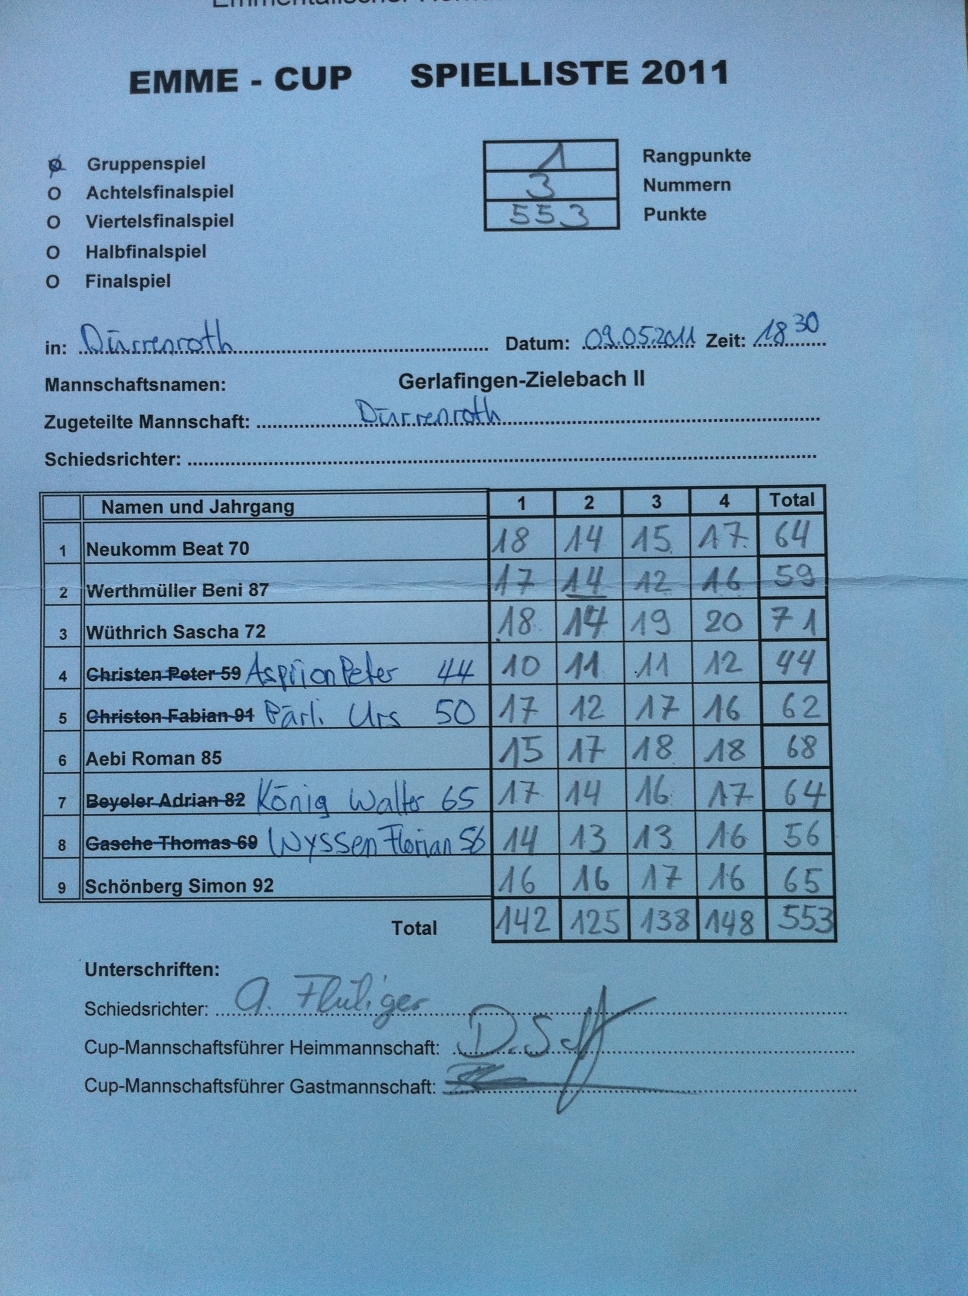 EMME - CUP SPIELLISTE 2011
Gruppenspiel
O Achtelsfinalspiel
O Viertelsfinalspiel
O Halbfinalspiel
O Finalspiel
1 Rangpunkte
3 Nummern
553 Punkte
in: Dürrenroth Datum: 09.05.2011 Zeit: 18 30
Mannschaftsnamen: Gerlafingen-Zielebach II
Zugeteilte Mannschaft: Dürrenroth
Schiedsrichter:
Namen und Jahrgang 1 2 3 4 Total
1 Neukomm Beat 70 18 14 15 17 64
2 Werthmüller Beni 87 17 14 12 16 59
3 Wüthrich Sascha 72 18 14 19 20 71
4 Christen Peter 59 Asprion Peter 44 10 11 11 12 44
5 Christen Fabian 91 Pärli Urs 50 17 12 17 16 62
6 Aebi Roman 85 15 17 18 18 68
7 Beyeler Adrian 82 König Walter 65 17 14 16 17 64
8 Gasche Thomas 69 Wyssen Florian 56 14 13 13 16 56
9 Schönberg Simon 92 16 16 17 16 65
Total 142 125 138 148 553
Unterschriften:
Schiedsrichter:
Cup-Mannschaftsführer Heimmannschaft:
Cup-Mannschaftsführer Gastmannschaft: